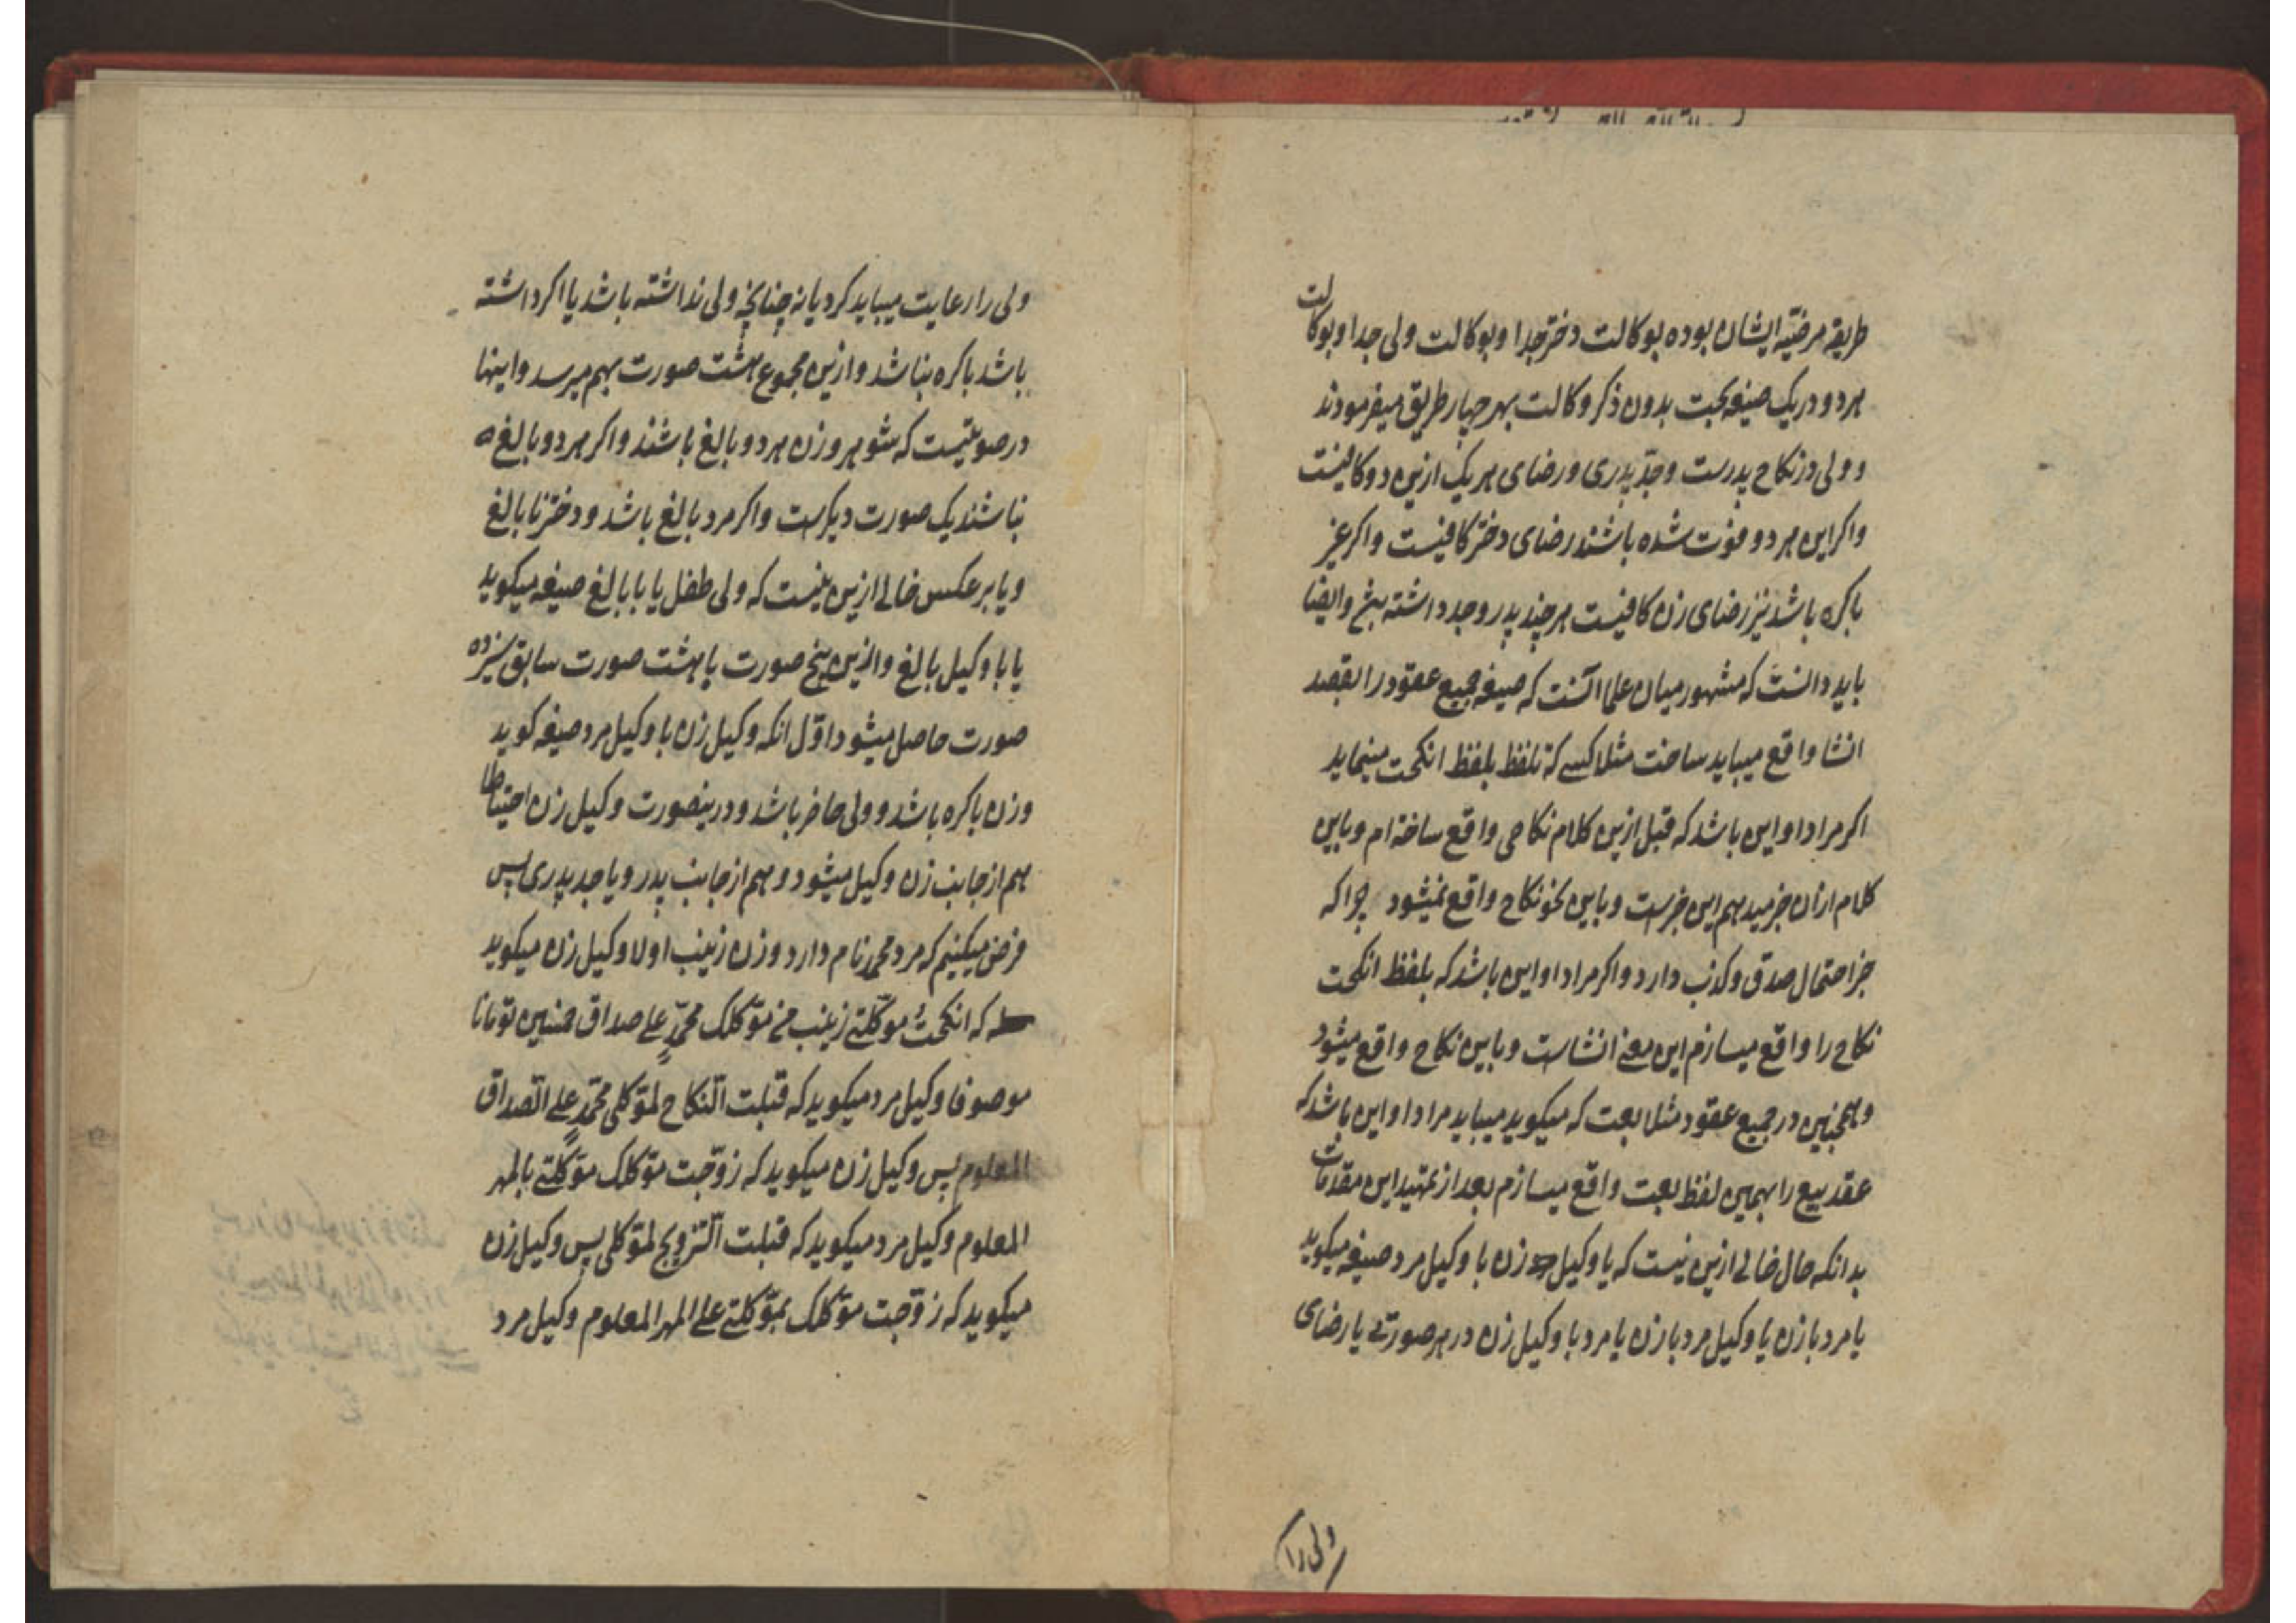 طریقه مرضیّه ایشان بوده بوکالت دختر جدا و بوکالت ولی جدا و بوکالت
هر دو در یک صیغه بجهت بدون ذکر وکالت بهر چهار طریق میفرمودند
و ولی در نکاح پدرست و جدّ پدری و رضای هر یک ازین دو کافیست
و اکر این هر دو فوت شده باشند رضای دختر کافیست و اکر غیر
باکره باشد نیز رضای زن کافیست هر چند پدر و جد داشته باشد و ایضا
باید دانست که مشهور میان علما آنست که صیغه جمیع عقود را بقصد
انشا واقع میباید ساخت مثلا کسی که تلفظ بلفظ انکحت مینماید
اکر مراد او این باشد که قبل ازین کلام نکاحی واقع ساخته ام و باین
کلام ازان خبر میدهم این خبرست و باین نحو نکاح واقع نمیشود چرا که
خبر احتمال صدق و کذب دارد و اکر مراد او این باشد که بلفظ انکحت
نکاح را واقع میسازم این معنی انشاست و باین نکاح واقع میشود
و همچنین در جمیع عقود مثلا بعت که میکوید میباید مراد او این باشد که
عقد بیع را بهمین لفظ بعت واقع میسازم بعد از تمهید این مقدمات
بدانکه حال خالی ازین نیست که یا وکیل زن با وکیل مرد صیغه میکوید
یا مرد با زن یا وکیل مرد با زن یا مرد با وکیل زن در هر صورتی یا رضای
ولی را
ولی را رعایت میباید کرد یا نه چنانچه ولی نداشته باشد یا اکر داشته
باشد باکره نباشد و ازین مجموع هشت صورت بهم میرسد و اینها
در صورتیست که شوهر و زن هر دو بالغ باشند و اکر هر دو بالغ
نباشند یک صورت دیکرست و اکر مرد بالغ باشد و دختر نابالغ
و یا بر عکس خالی ازین نیست که ولی طفل یا با بالغ صیغه میکوید
یا با وکیل بالغ و ازین پنج صورت با هشت صورت سابق سیزده
صورت حاصل میشود اوّل انکه وکیل زن با وکیل مرد صیغه کوید
و زن باکره باشد و ولی حاضر باشد و درینصورت وکیل زن احتیاطا
هم از جانب زن وکیل میشود و هم از جانب پدر و یا جد پدری پس
فرض میکنیم که مرد محمد نام دارد و زن زینب اولا وکیل زن میکوید
که انکحتُ موکّلتی زینب من موکّلک محمّدٍ علی صداق خمسین تومانا
موصوفا وکیل مرد میکوید که قبلت النّکاح لموکّلی محمّدٍ علی الصّداق
المعلوم پس وکیل زن میکوید که زوّجت موکّلک موکّلتی بالمهر
المعلوم وکیل مرد میکوید که قبلت التّزویج لموکّلی پس وکیل زن
میکوید که زوّجت موکّلک بموکّلتی علی المهر المعلوم وکیل مرد